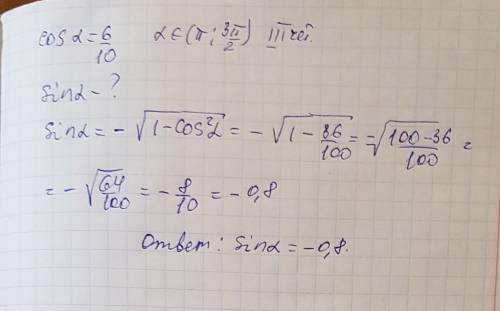 cos α = 6/10 α ∈ (π; 3π/2) III чет.
sin α - ?
sin α = - √(1 - cos²α) = - √(1 - 36/100) = - √((100-36)/100) =
= - √(64/100) = - 8/10 = - 0,8
Ответ: sin α = - 0,8.